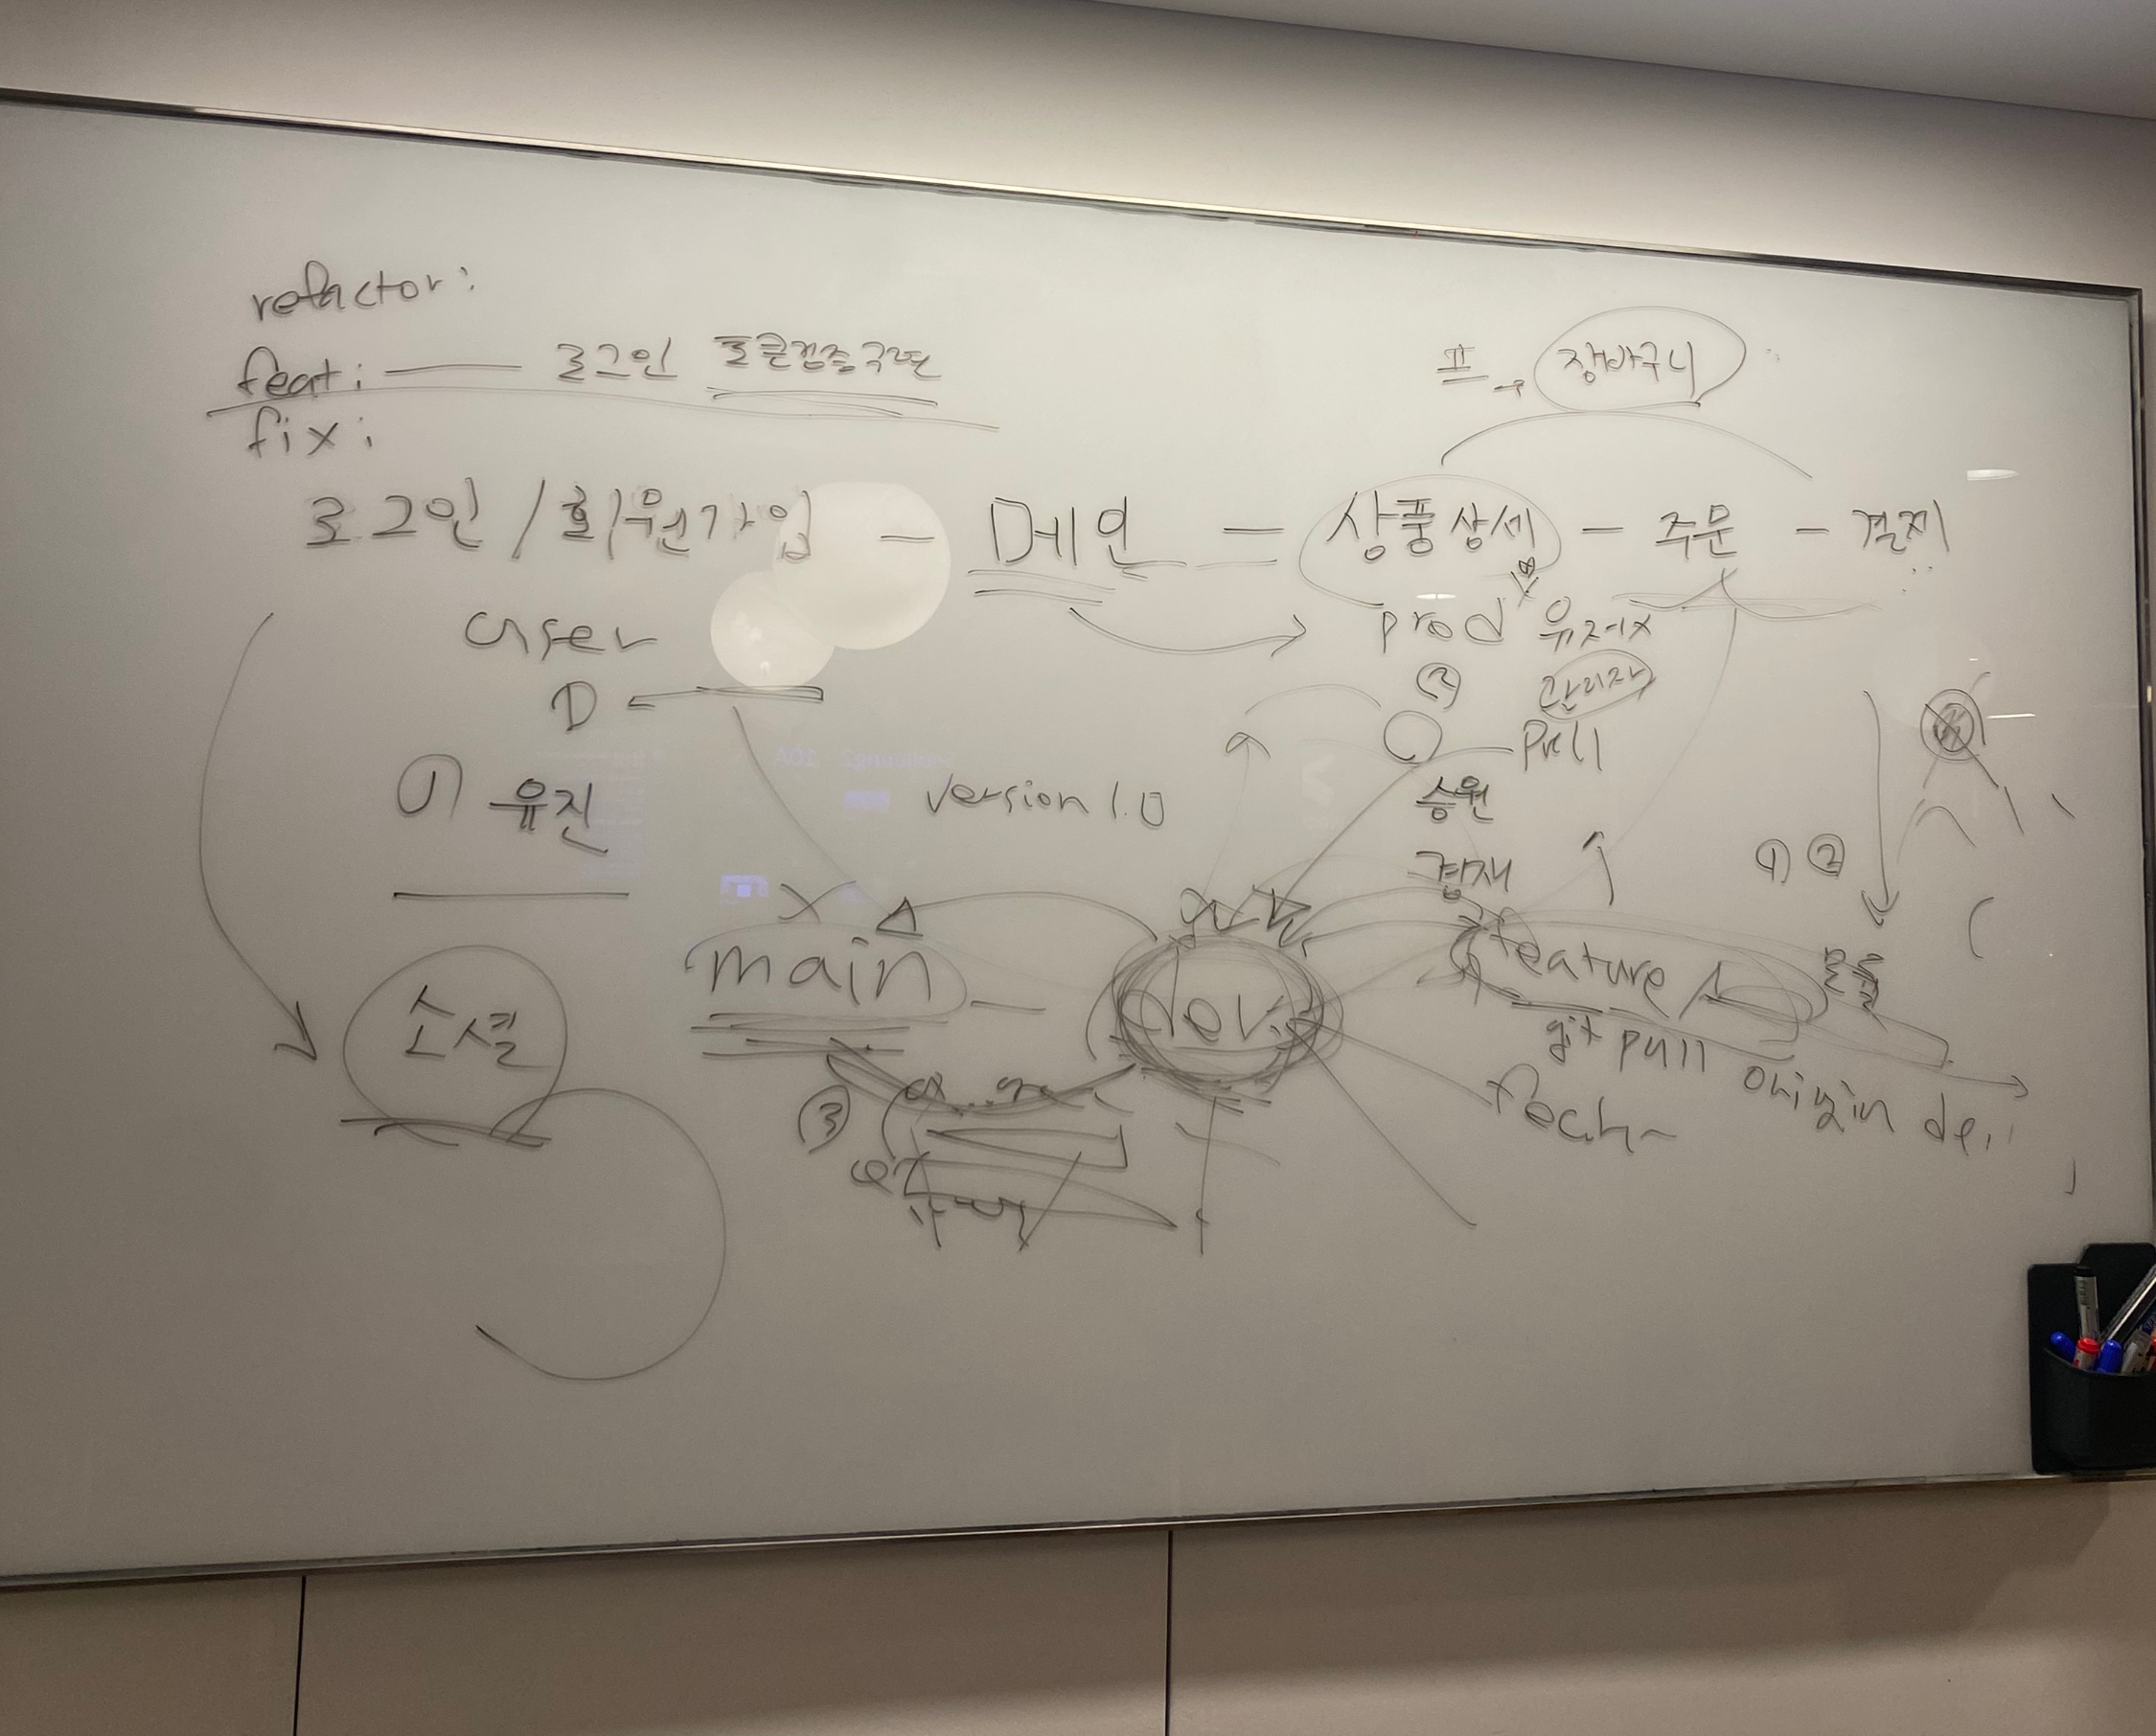 refactor:
feat: 로그인 토큰검증구현
fix:
프 → 장바구니
로그인 / 회원가입 - 메인 = 상품상세 - 주문 - 결제
user
prod 유저x
② 관리자
①
pull
① 유진
version 1.0
승원
경재
① ②
main
dev
feature
소셜
git pull
origin dev
③